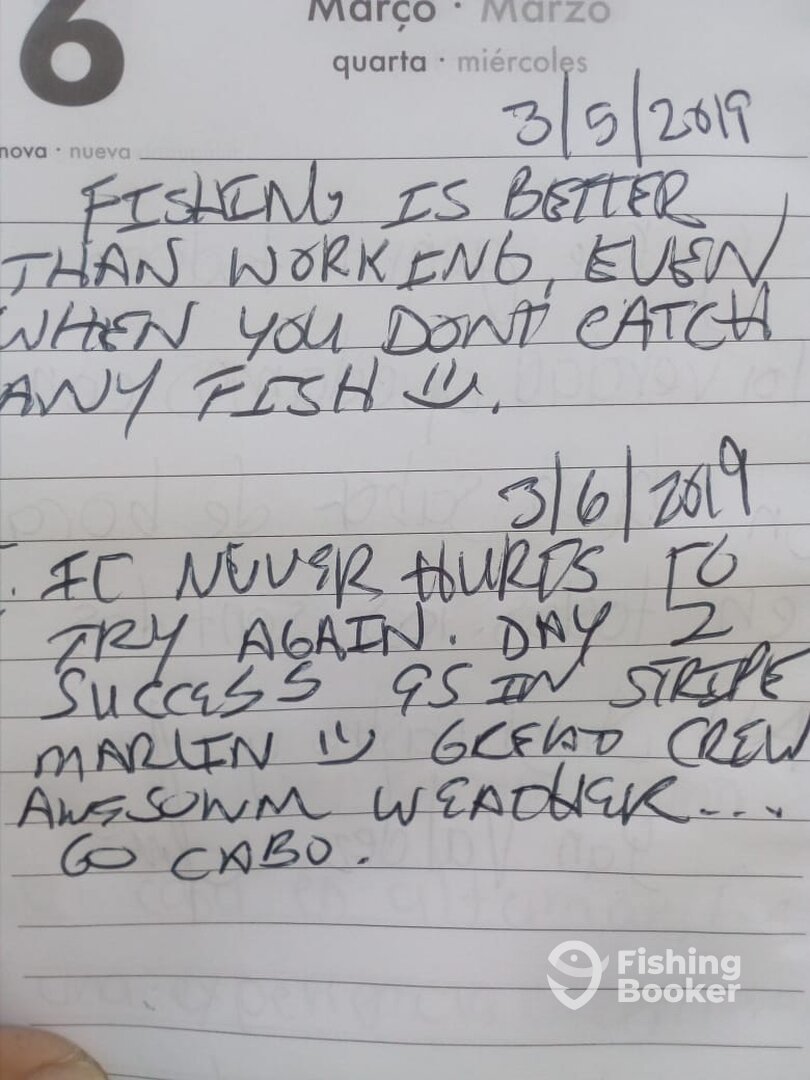 6
Março · Marzo
quarta · miércoles
3/5/2019
nova · nueva
FISHING IS BETTER
THAN WORKING, EVEN
WHEN YOU DONT CATCH
ANY FISH
3/6/2019
IT NEVER HURTS TO
TRY AGAIN. DAY 2
SUCCESS 95 IN STRIPE
MARLIN GREAT CREW
AWESOWM WEATHER...
GO CABO.
Fishing
Booker